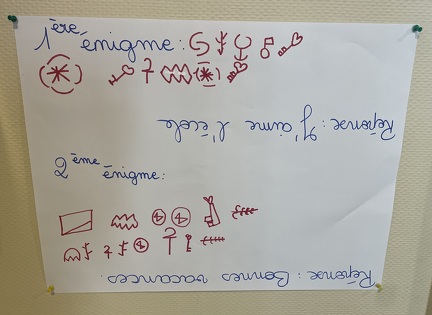 1ère énigme:
Réponse: J'aime l'école
2ème énigme:
Réponse: Bonnes vacances.